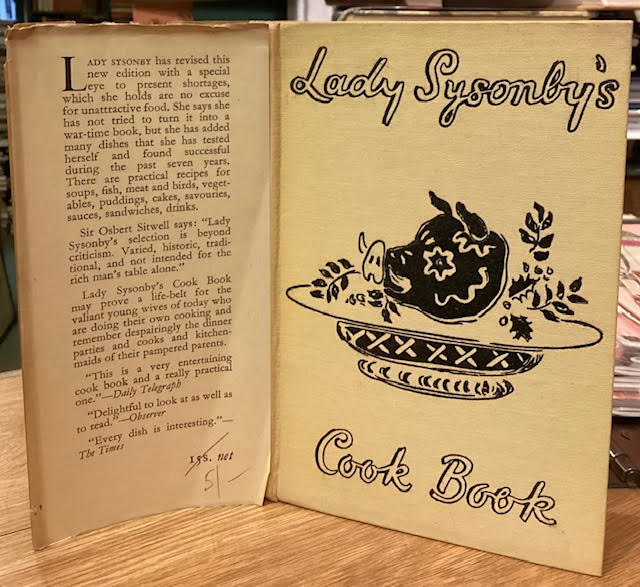 LADY SYSONBY has revised this
new edition with a special
eye to present shortages,
which she holds are no excuse
for unattractive food. She says she
has not tried to turn it into a
war-time book, but she has added
many dishes that she has tested
herself and found successful
during the past seven years.
There are practical recipes for
soups, fish, meat and birds, veget-
ables, puddings, cakes, savouries,
sauces, sandwiches, drinks.
Sir Osbert Sitwell says: "Lady
Sysonby's selection is beyond
criticism. Varied, historic, tradi-
tional, and not intended for the
rich man's table alone."
Lady Sysonby's Cook Book
may prove a life-belt for the
valiant young wives of today who
are doing their own cooking and
remember despairingly the dinner
parties and cooks and kitchen-
maids of their pampered parents.
"This is a very entertaining
cook book and a really practical
one."—Daily Telegraph
"Delightful to look at as well as
to read."—Observer
"Every dish is interesting."—
The Times
15s. net
5/-
Lady Sysonby's
Cook Book